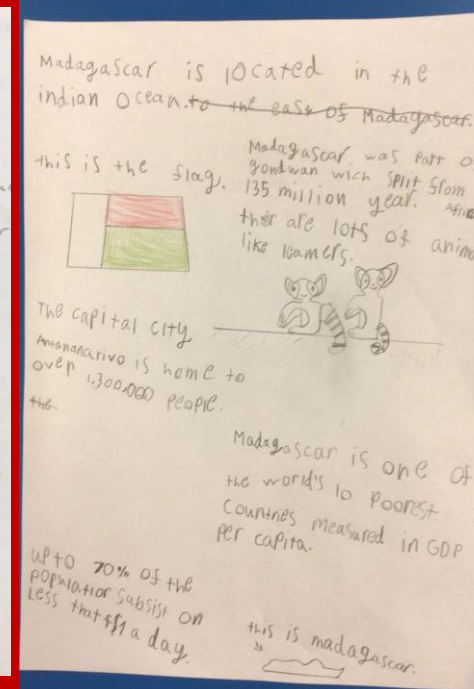 Madagascar is located in the
indian Ocean. to the east of Madagascar.
this is the flag.
Madagascar was Part o
gondwan wich split from
135 million year. Afric
their are lots of anima
like leamers.
The capital city
Antananarivo is home to
over 1,300,000 people.
the
Madagascar is one of
the world's 10 Poorest
Countries measured in GDP
per capita.
up to 70% of the
population subsist on
Less that $1 a day.
this is madagascar.